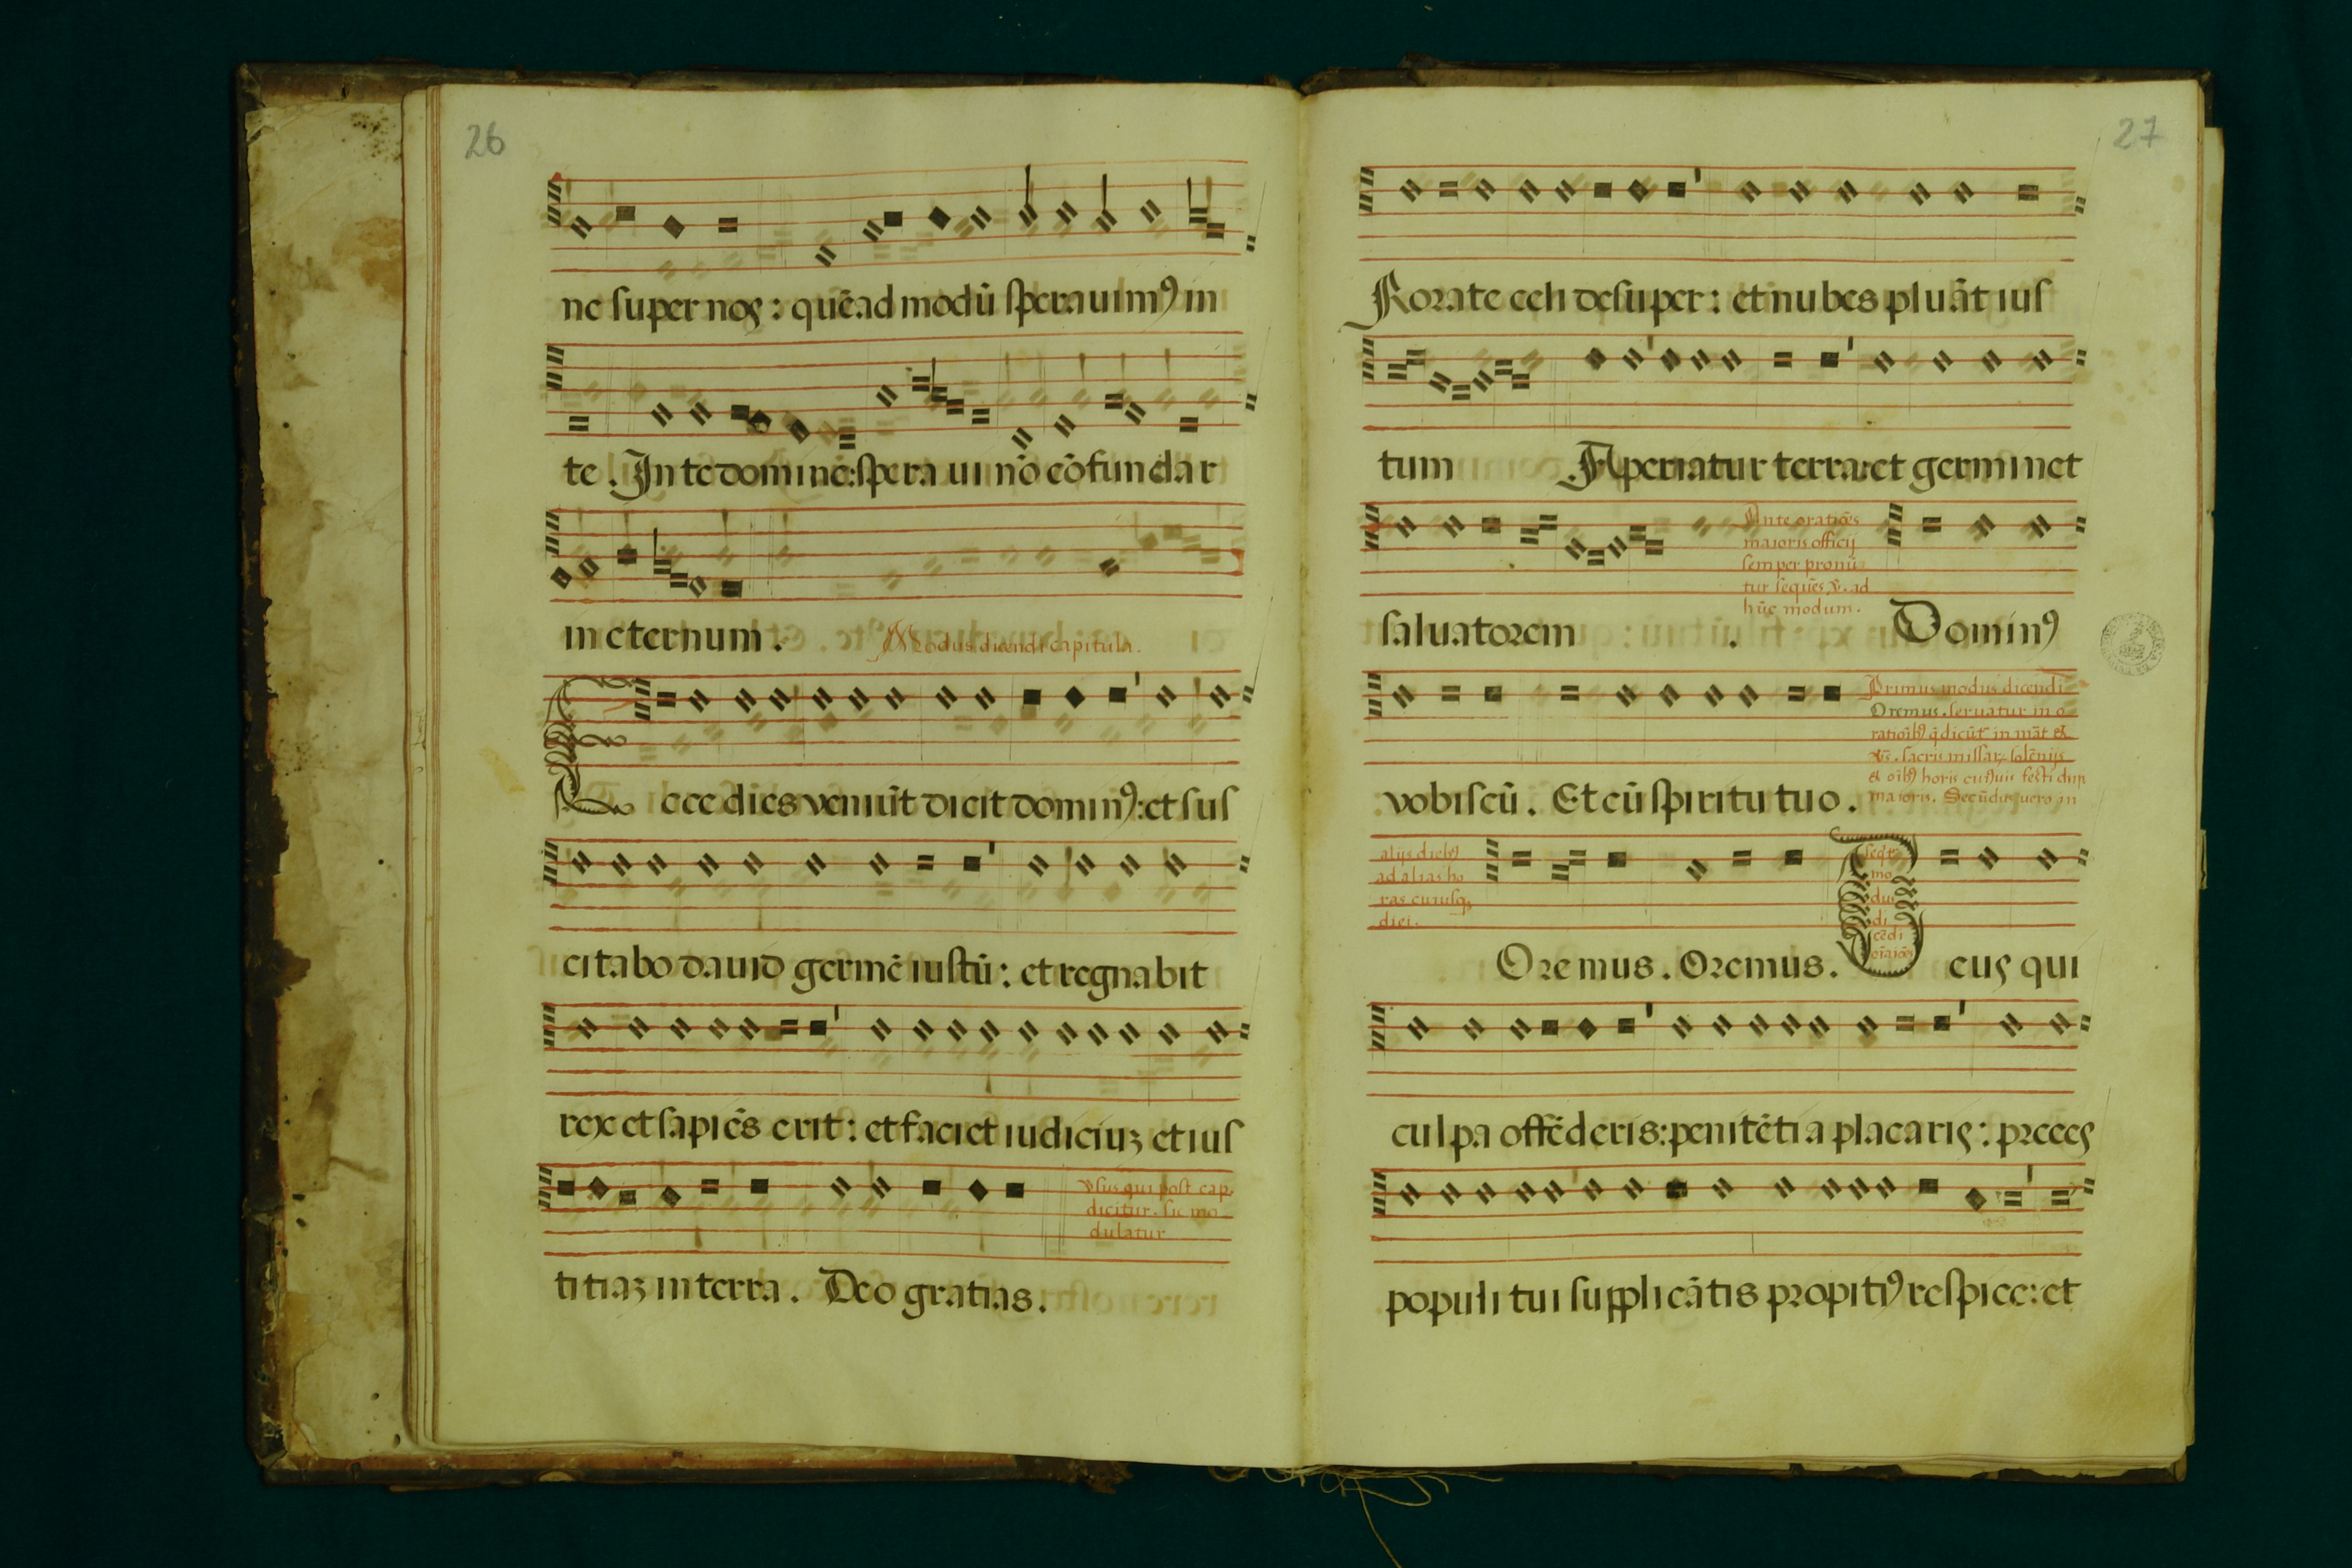 26
ne super nos : quēad modū sperauimꝰ in
te . In te domine : spera ui nō cōfundar
in eternum .
Modus dicendi capitula .
Ecce dies veniūt dicit dominꝰ : et sus
citabo dauid germē iustū : et regnabit
rex et sapiēs erit : et faciet iudiciuʒ et ius
titiaʒ in terra . Deo gratias .
v̄sus qui post cap.
dicitur . sic mo
dulatur
27
Rorate celi desuper : et nubes pluāt ius
tum Aperiatur terra : et germinet
Ante oratiōēs
maioris officij
semper pronū
tur sequēs ℣. ad
hūc modum .
saluatorem . Dominꝰ
vobiscū . Et cū spiritu tuo .
Primus modus dicendi
Oremus . seruatur in o
ratiōibꝰ q̄ dicūt in māt et
sacris missaꝝ solēnijs
et oībꝰ horis cuiꝰuis festi dup
maioris . Secūdus uero in
alijs diebꝰ
ad alias ho
ras cuiusqꝫ
diei .
Oremus . Oremus . Deus qui
mo
dus
di
cēdi
culpa offēderis : penitētia placaris : preces
populi tui supplicātis propitiꝰ respice : et